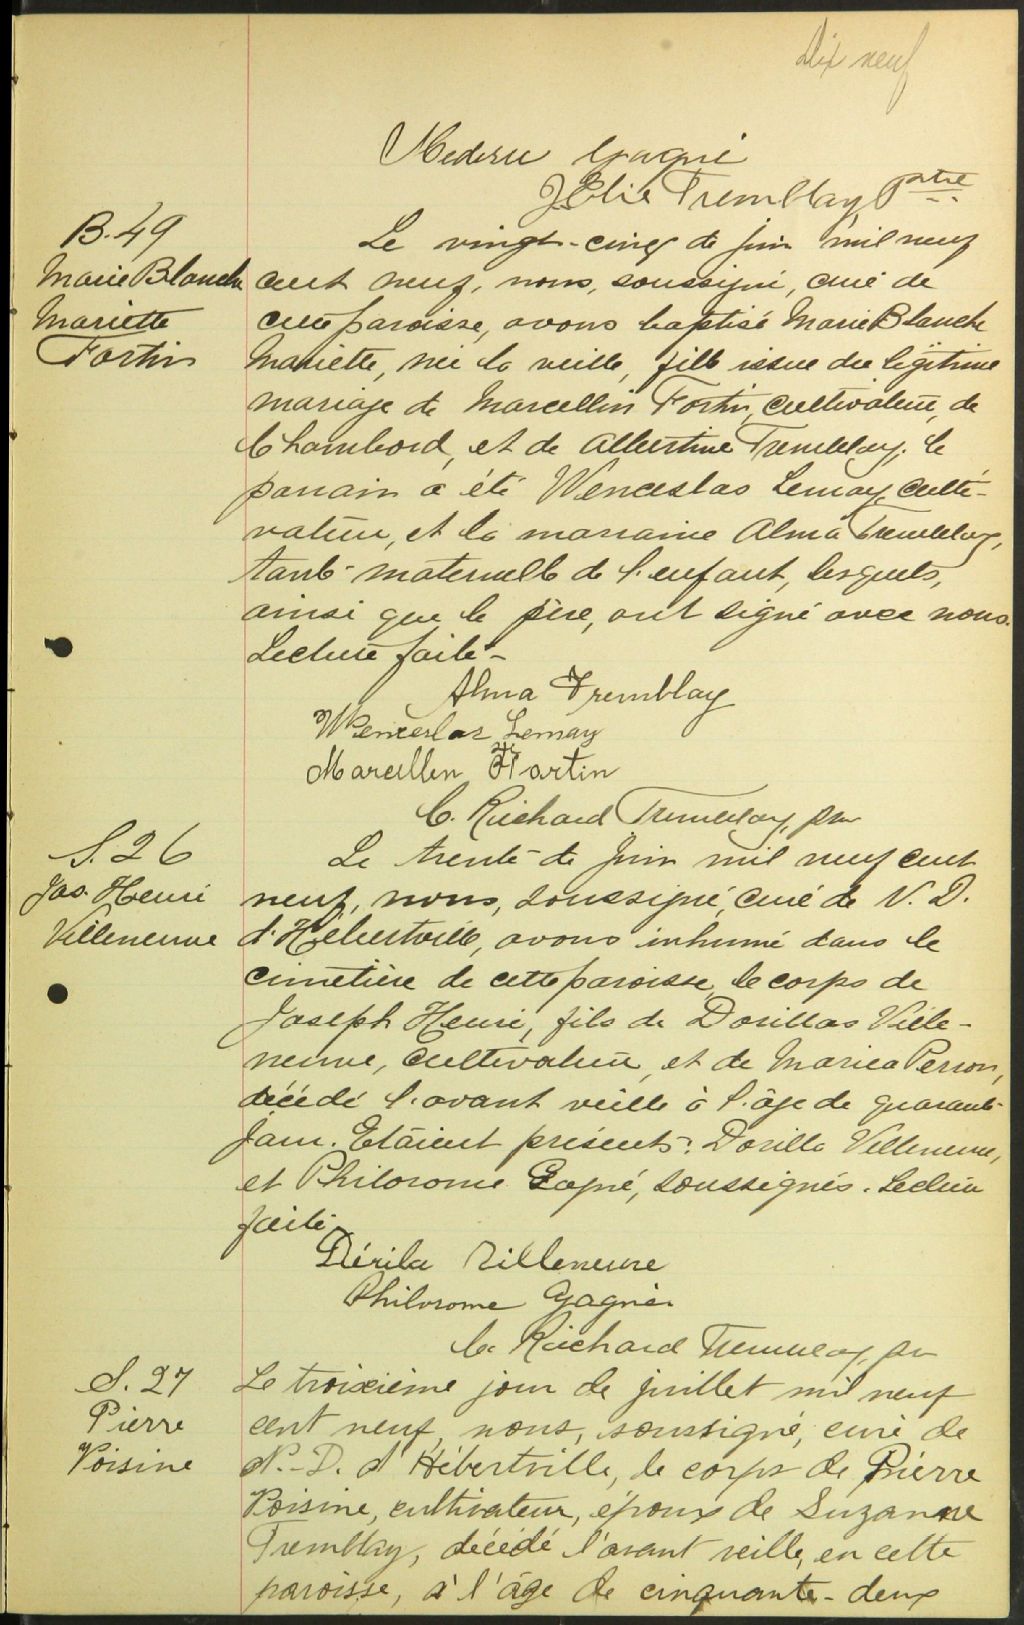 Dix neuf
Mederic Gagné
J Elie Tremblay Ptre
B. 49
Marie Blanche
Mariette
Fortin
Le vingt-cinq de juin mil neuf
cent neuf, nous, soussigné, curé de
cette paroisse, avons baptisé Marie Blanche
Mariette, née la veille, fille issue du légitime
mariage de Marcellin Fortin, cultivateur, de
Chambord, et de Albertine Tremblay. Le
parrain a été Wenceslas Lemay, culti-
vateur, et la marraine Alma Tremblay,
tante maternelle de l'enfant, lesquels,
ainsi que le père, ont signé avec nous.
Lecture faite -
Alma Tremblay
Wenceslas Lemay
Marcellin Fortin
C. Richard Tremblay, ptre
S. 26
Jos. Henri
Villeneuve
Le trente de juin mil neuf cent
neuf, nous, soussigné, curé de N. D.
d'Hébertville, avons inhumé dans le
cimetière de cette paroisse, le corps de
Joseph Henri, fils de Dorillas Ville-
neuve, cultivateur, et de Marica Perron,
décédé l'avant veille à l'âge de quarante
jours. Etaient présents: Dorilla Villeneuve,
et Philorome Gagné, soussignés. Lecture
faite.
Dérila Villeneuve
Philorome Gagnér
C. Richard Tremblay, ptre
S. 27
Pierre
Voisine
Le troisième jour de juillet mil neuf
cent neuf, nous, soussigné, curé de
N.-D. d'Hébertville, le corps de Pierre
Voisine, cultivateur, époux de Suzanne
Tremblay, décédé l'avant veille, en cette
paroisse, à l'âge de cinquante-deux